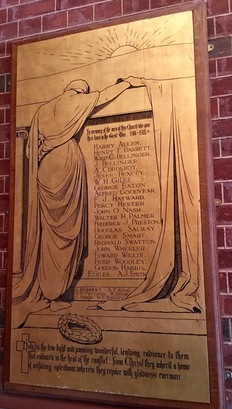 To memory of the men of this Church who gave
their lives in the Great War. 1914-1919.
HARRY ALLEN.
HENRY F. BARRETT.
BELLINGER.
J. BELLINGER.
A. CORDEROY.
JESSE HENLEY.
W. H. GILES.
GEORGE EATON.
ALFRED GOODYEAR.
F. J. HAYWARD.
PERCY HESTER.
JOHN O. NASH.
WALTER H. PALMER.
FREDERICK J. PRESTON.
DOUGLAS SALWAY.
GEORGE SMART.
REGINALD SWATTON.
JOHN WHEELER.
EDWARD WILLIS.
FRED WOODLEY.
GORDON HARRIS.
E. GILES. A.J. SMITH.
is the true light and passing wonderful, lending radiance to them
that endured in the heat of the conflict: from Christ they inherit a home
of unfading splendour, wherein they rejoice with gladness evermore